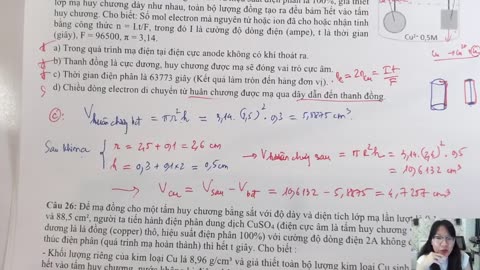 lớp mạ huy chương dày như nhau, toàn bộ lượng đồng tạo ra đều bám hết vào tấm
huy chương. Cho biết: Số mol electron mà nguyên tử hoặc ion đã cho hoặc nhận tính
bằng công thức n = I.t/F, trong đó I là cường độ dòng điện (ampe), t là thời gian
(giây), F = 96500, π = 3,14.
Cu²⁺ 0,5M
a) Trong quá trình mạ điện tại điện cực anode không có khí thoát ra.
b) Thanh đồng là cực dương, huy chương được mạ sẽ đóng vai trò cực âm.
c) Thời gian điện phân là 63773 giây (Kết quả làm tròn đến hàng đơn vị).
d) Chiều dòng electron di chuyển từ huân chương được mạ qua dây dẫn đến thanh đồng.
V = πr²h = 3,14. (2,5)². 0,3 = 5,8875 cm³.
Sau khi mạ { r = 2,5 + 0,1 = 2,6 cm
h = 0,3 + 0,1x2 = 0,5cm
→ V huân chương sau = πR²h = 3,14. (2,6)². 0,5
= 10,6132 cm³
→ V Cu = V sau - V bđ = 10,6132 - 5,8875 = 4,7257 cm³
Câu 26: Để mạ đồng cho một tấm huy chương bằng sắt với độ dày và diện tích lớp mạ lần lượt
và 88,5 cm², người ta tiến hành điện phân dung dịch CuSO₄ (điện cực âm là tấm huy chương
dương là lá đồng (copper) thô, hiệu suất điện phân 100%) với cường độ dòng điện 2A không
thúc điện phân (quá trình mạ hoàn thành) thì hết t giây. Cho biết :
- Khối lượng riêng của kim loại Cu là 8,96 g/cm³ và giả thiết toàn bộ lượng kim loại Cu sinh